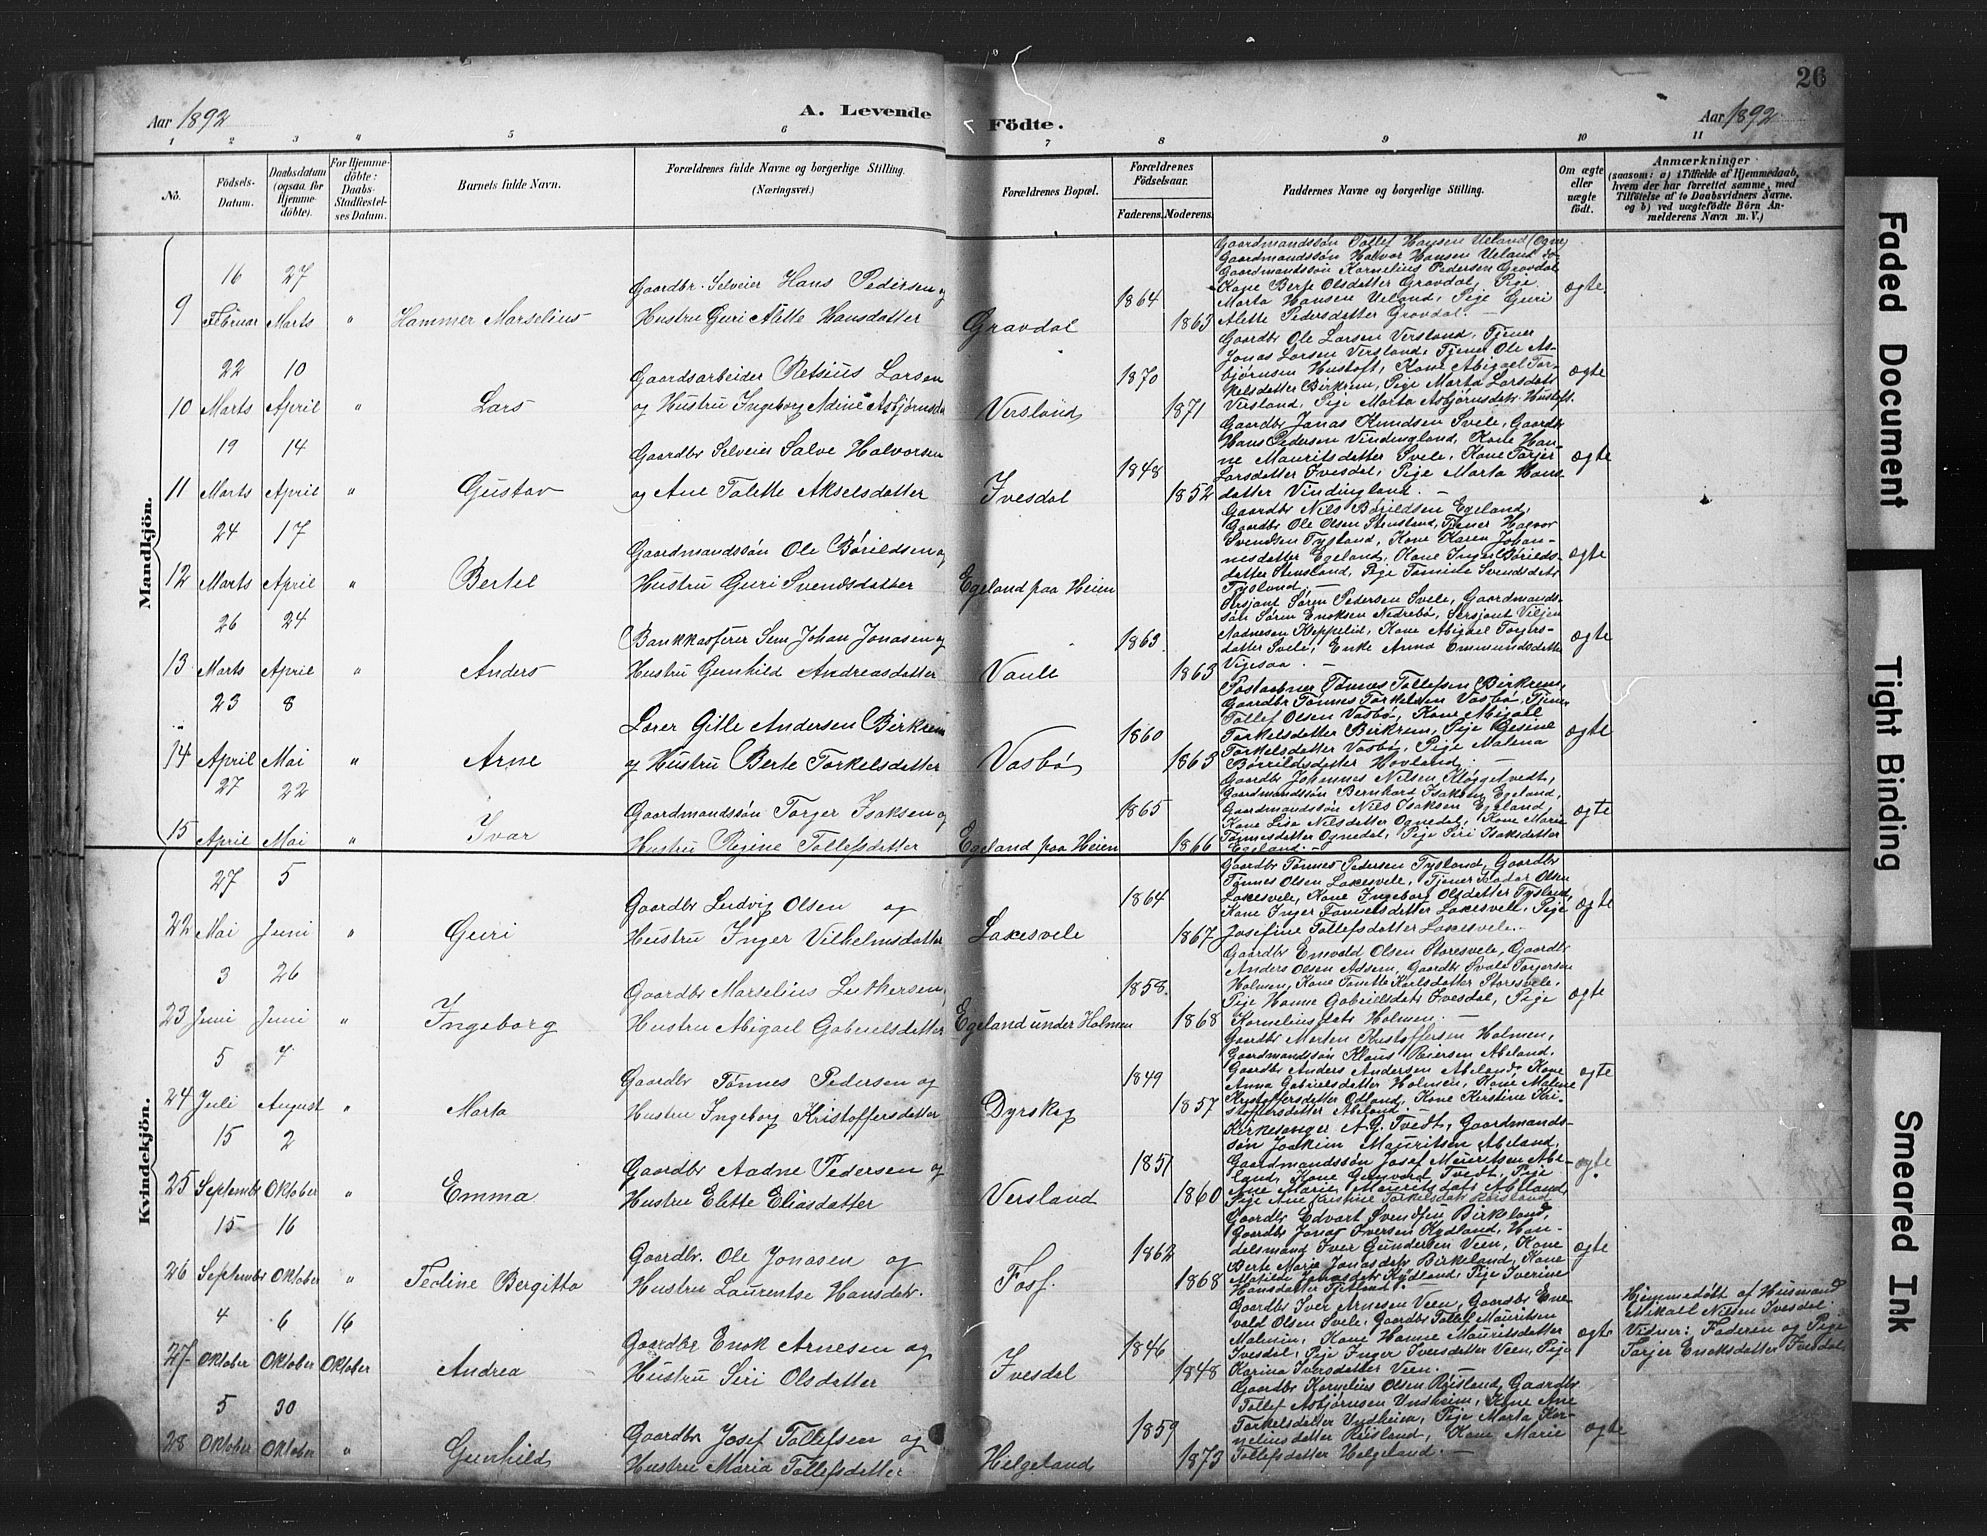 Aar 1892
A. Levende
Födte.
Aar 1892
26
1 2 3 " 5 6 7 8 9 10 11
No.
Födsels-Datum.
Daabsdatum (ogsaa for Hjemme-döbte).
For Hjemme-döbte: Daabs-Stadfæstel-ses Datum.
Barnets fulde Navn.
Forældrenes fulde Navne og borgerlige Stilling.
(Næringsvei.)
Forældrenes Bopæl.
Forældrenes Födselsaar.
Faderens. Moderens.
Faddernes Navne og borgerlige Stilling.
Om ægte eller uægte födt.
Anmærkninger
(saasom: a) i Tilfælde af Hjemmedaab, hvem der har forrettet samme, med Tilföielse af to Daabsvidners Navne, og b) ved uægtefödte Börn An-melderens Navn m. V.)
Mandkjön.
9
16 Februar
27 Marts
"
Hammer Marselius
Gaardbr. Selveier Hans Pedersen og
Hustru Guri Alette Hansdatter
Gravdal
1864
1863
Gaardmandssön Tollef Hansen Ueland (Ogne)
Gaardmandssön Halvor Hansen Ueland do
Gaardmandssön Kornelius Pedersen Gravdal
Kone Berte Olsdatter Gravdal, Pige
Marta Hansen Ueland, Pige Guri
Alette Pedersdatter Gravdal.
ægte.
10
22 Marts
10 April
"
Lars
Gaardsarbeider Retsius Larsen
og Hustru Ingeborg Adine Asbjørnsd
Versland
1870
1871
Gaardbr Ole Larsen Versland, Tjener
Jonas Larsen Versland, Tjener Ole As-
bjørnsen Hustoft, Kone Abigael Tor-
kelsdatter Birkrem, Pige Marta Larsdatr
Versland, Pige Marta Asbjørnsdatr Hustoft.
ægte
11
19 Marts
14 April
"
Gustav
Gaardbr Selveier Salve Halvorsen
og Ane Tolette Akselsdatter
Ivesdal
1848
1852
Gaardbr Jonas Knudsen Svele, Gaardbr
Hans Pedersen Vindingland, Kone Han-
ne Mauritsdatter Svele, Kone Torjer
Larsdatter Ivesdal, Pige Marta Hans
datter Vindingland. -
ægte
12
24 Marts
17 April
"
Bertel
Gaardmandssön Ole Børildsen og
Hustru Guri Svendsdatter
Egeland paa Heien
Gaardbr Nils Børildsen Egeland,
Gaardbr Ole Olsen Stensland, Tjener Halvor
Svendsen Tysland, Kone Karen Johan-
nesdatter Egeland, Kone Inger Børilds-
datter Stensland, Pige Tomine Svendsdatr
Tysland.
ægte
13
26 Marts
24 April
"
Anders
Bankkasserer Sem Johan Jonasen og
Hustru Gunhild Andreasdatter
Vaule
1863.
1863
Sersjant Søren Pedersen Svele, Gaardmands-
søn Søren Enoksen Nedrebø, Sersjant Viljen
Aadnesen Kleppelid, Kone Abigael Torgers-
datter Svele, Enke Anna Ommundsdatter
Vigesaa. -
ægte
14
23 April
8 Mai
"
Arne
Lærer Gitle Andersen Birkrem
og Hustru Berte Torkelsdatter
Vasbø
1860
1863
Postaabner Tønnes Tollefsen Birkrem,
Gaardbr Tønnes Torkelsen Vasbø, Tjener
Tollef Olsen Vasbø, Kone Abigael
Torkelsdatter Birkrem, Pige Gesine
Torkelsdatter Vasbø, Pige Malena
Børrildsdatter Hovland. -
ægte
15
27 April
22 Mai
"
Ivar
Gaardmandssön Torger Isaksen og
Hustru Regine Tollefsdatter
Egeland paa Heien
1865
1866
Gaardbr Johannes Nilsen Kløgetvedt,
Gaardmandssön Bernhard Isaksen Egeland,
Gaardmandssön Nils Isaksen Egeland,
Kone Lisa Nilsdatter Ognedal, Kone Maria
Tønnesdatter Ognedal, Pige Siri Isaksdatter
Egeland. -
ægte
Kvindekjön.
22
27 Mai
5 Juni
"
Guri
Gaardbr Ludvig Olsen og
Hustru Inger Vilhelmsdatter
Laksesvele
1864
1867
Gaardbr Tønnes Pedersen Tysland, Gaardbr
Tønnes Olsen Laksesvele, Tjener Peder Olsen
Laksesvele, Kone Ingeborg Olsdatter Tysland,
Kone Inger Tønnesdatter Laksesvele, Pige
Josefine Tollefsdatter Laksesvele.
ægte
23
3 Juni
26 Juni
"
Ingeborg
Gaardbr Marselius Luthersen,
Hustru Abigael Gabrielsdatter
Egeland under Holmen
1858.
1868
Gaardbr Enevald Olsen Storesvele, Gaardbr
Anders Olsen Adsem, Gaardbr Svale Torjersen
Holmen, Kone Tonette Karlsdatter Storesvele,
Pige Hanne Gabrielsdatr Ivesdal, Pige
Korneliusdatr Holmen. -
ægte
24
5 Juli
7 August
"
Marta
Gaardbr Tønnes Pedersen og
Hustru Ingeborg Kristoffersdatter
Dyrskog
1849
1857
Gaardbr Morten Kristoffersen Holmen,
Gaardmandssön Klaus Reiersen Abeland,
Gaardbr Anders Andersen Abeland, Kone
Anna Gabrielsdatter Holmen, Kone Malene
Kristoffersdatter Odland, Kone Kirstine Kri-
stoffersdatter Abeland.
ægte
25
15 Septembr
2 Oktober
"
Emma
Gaardbr Aadne Pedersen og
Hustru Elette Eliasdatter
Versland
1851
1860
Kirkesanger A. G. Tvedt, Gaardmands-
søn Joakim Mauritsen Abeland,
Gaardmandssøn Josef Mauritsen Abe-
land, Kone Gunvord Tvedt, Pige
Ane Marie Mauritsdatr Abeland,
Pige Ane Kristine Torkelsdatr Versland
ægte
26
15 Septembr
16 Oktober
"
Tedine Bergitta
Gaardbr. Ole Jonasen og
Hustru Laurentse Hansdatr.
Fosf.
1862
1868
Gaardbr Edvart Svendsen Birkeland,
Gaardbr Jonas Iversen Kydland, Han-
delsmand Iver Gundersen Veen, Kone
Berte Maria Jonasdatr Birkeland, Kone
Matilde Jonasdatr Kydland, Pige Iverine
Hansdatter Fjetland.
ægte
27
4 Oktober
6 Oktober
16 Oktober
Andrea
Gaardbr Enok Arnesen og
Hustru Siri Olsdatter
Ivesdal
1846
1848
Gaardbr Iver Arnesen Veen, Gaardbr Ene-
vald Olsen Svele, Gaardbr Tollef Mauritsen
Malmin, Kone Hanne Mauritsdatter
Ivesdal, Pige Inger Iversdatter Veen, Pige
Karina Iversdatter Veen. -
ægte
Hjemmedøbt af Husmand
Mikael Nilsen Ivesdal.
Vidner: Faderen og Pige
Torjer Enoksdatter Ivesdal
28
5 Oktober
30 Oktober
"
Gunhild
Gaardbr Josef Tollefsen og
Hustru Maria Tollefsdatter
Helgeland
1859
1873
Gaardbr Kornelius Olsen Røisland, Gaardbr
Tollef Asbjørnsen Undheim, Kone Ane
Torkelsdatter Undheim, Pige Marta Kor-
neliusdatter Røisland, Kone Marie
Tollefsdatter Helgeland. -
ægte
Faded Document
Tight Binding
Smeared Ink